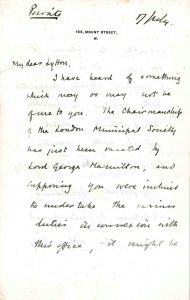 Private
17 July
123, MOUNT STREET,
W.
My dear Lytton.
I have heard of something
which may or may not be
of use to you. The Chairmanship
of the London Municipal Society
has just been vacated by
Lord George Hamilton, and
supposing you were inclined
to undertake the various
duties in connexion with
this office, it might be